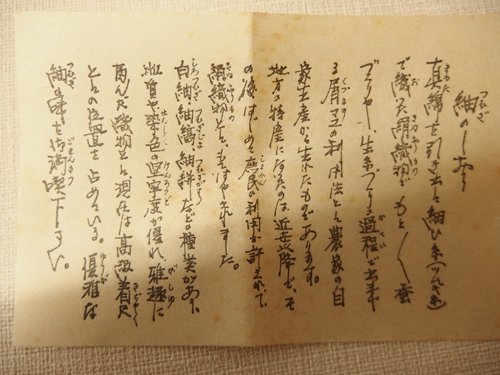 紬のしおり
真綿を引き出した細い糸(つむぎ糸)
で織った絹織物で、もともと蚕
づくりや、生糸づくりの過程で出来
る屑マユの利用法として農家の自
家生産から生れたものであります。
地方の特産になったのは近世以降で、そ
の後はじめて庶民の利用が許されて、
絹織物として、もてはやされました。
白紬、紬縞、紬絣などの種類があり、
や染色の堅牢度が優れ、雅趣に
富んだ織物として、現在は高級着尺
としての位置を占めている。優雅な
紬の味を御満喫下さい。